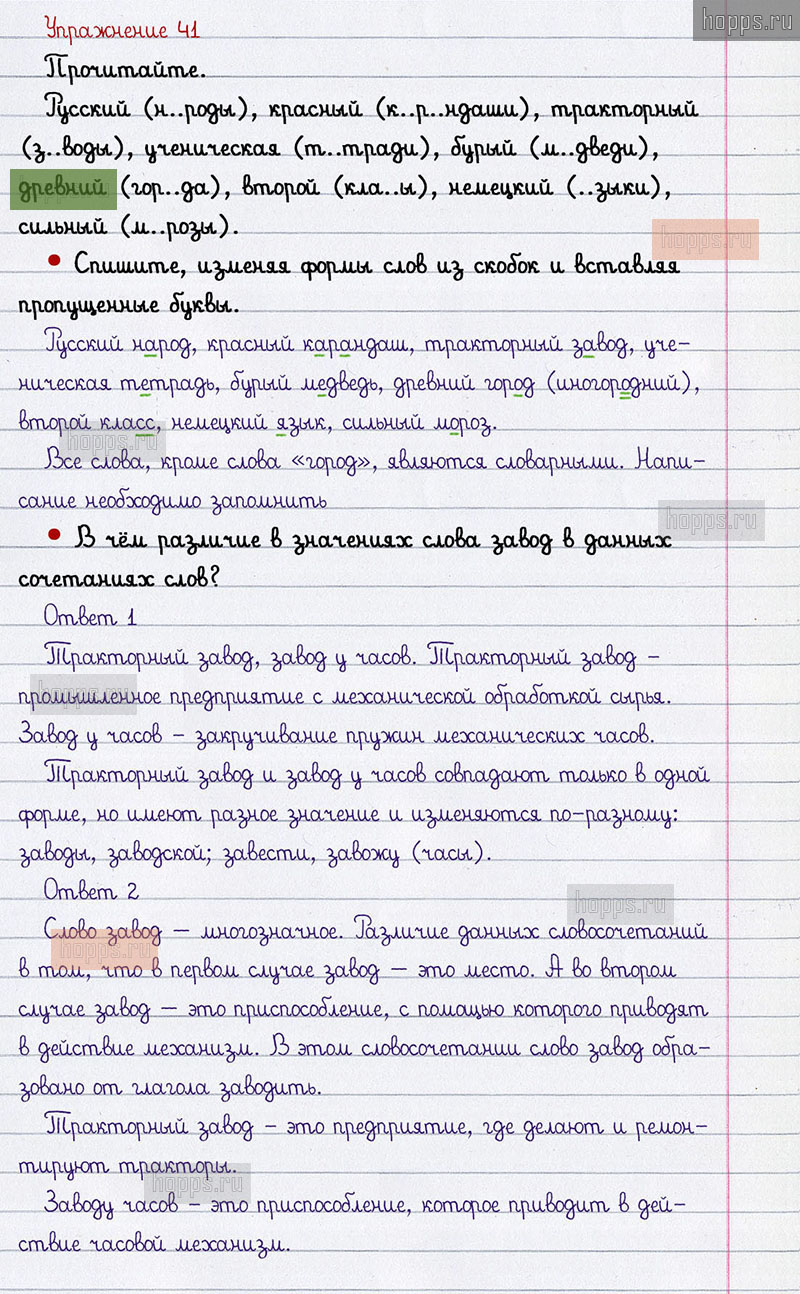 hopps.ru
Упражнение 41
Прочитайте.
Русский (н..роды), красный (к..р..ндаши), тракторный
(з..воды), ученическая (т..тради), бурый (м..дведи),
древний (гор..да), второй (кла..ы), немецкий (..зыки),
сильный (м..розы).
hopps.ru
• Спишите, изменяя формы слов из скобок и вставляя
пропущенные буквы.
Русский народ, красный карандаш, тракторный завод, уче-
ническая тетрадь, бурый медведь, древний город (иногородний),
второй класс, немецкий язык, сильный мороз.
hopps.ru
Все слова, кроме слова «город», являются словарными. Напи-
сание необходимо запомнить
hopps.ru
• В чём различие в значениях слова завод в данных
сочетаниях слов?
Ответ 1
Тракторный завод, завод у часов. Тракторный завод –
промышленное предприятие с механической обработкой сырья.
hopps.ru
Завод у часов – закручивание пружин механических часов.
Тракторный завод и завод у часов совпадают только в одной
форме, но имеют разное значение и изменяются по-разному:
заводы, заводской; завести, завожу (часы).
Ответ 2
hopps.ru
Слово завод – многозначное. Различие данных словосочетаний
hopps.ru
в том, что в первом случае завод – это место. А во втором
случае завод – это приспособление, с помощью которого приводят
в действие механизм. В этом словосочетании слово завод обра-
зовано от глагола заводить.
Тракторный завод – это предприятие, где делают и ремон-
тируют тракторы.
hopps.ru
Заводу часов – это приспособление, которое приводит в дей-
ствие часовой механизм.